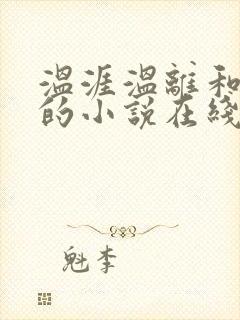 温涯温離和
的小説在綫
魁李